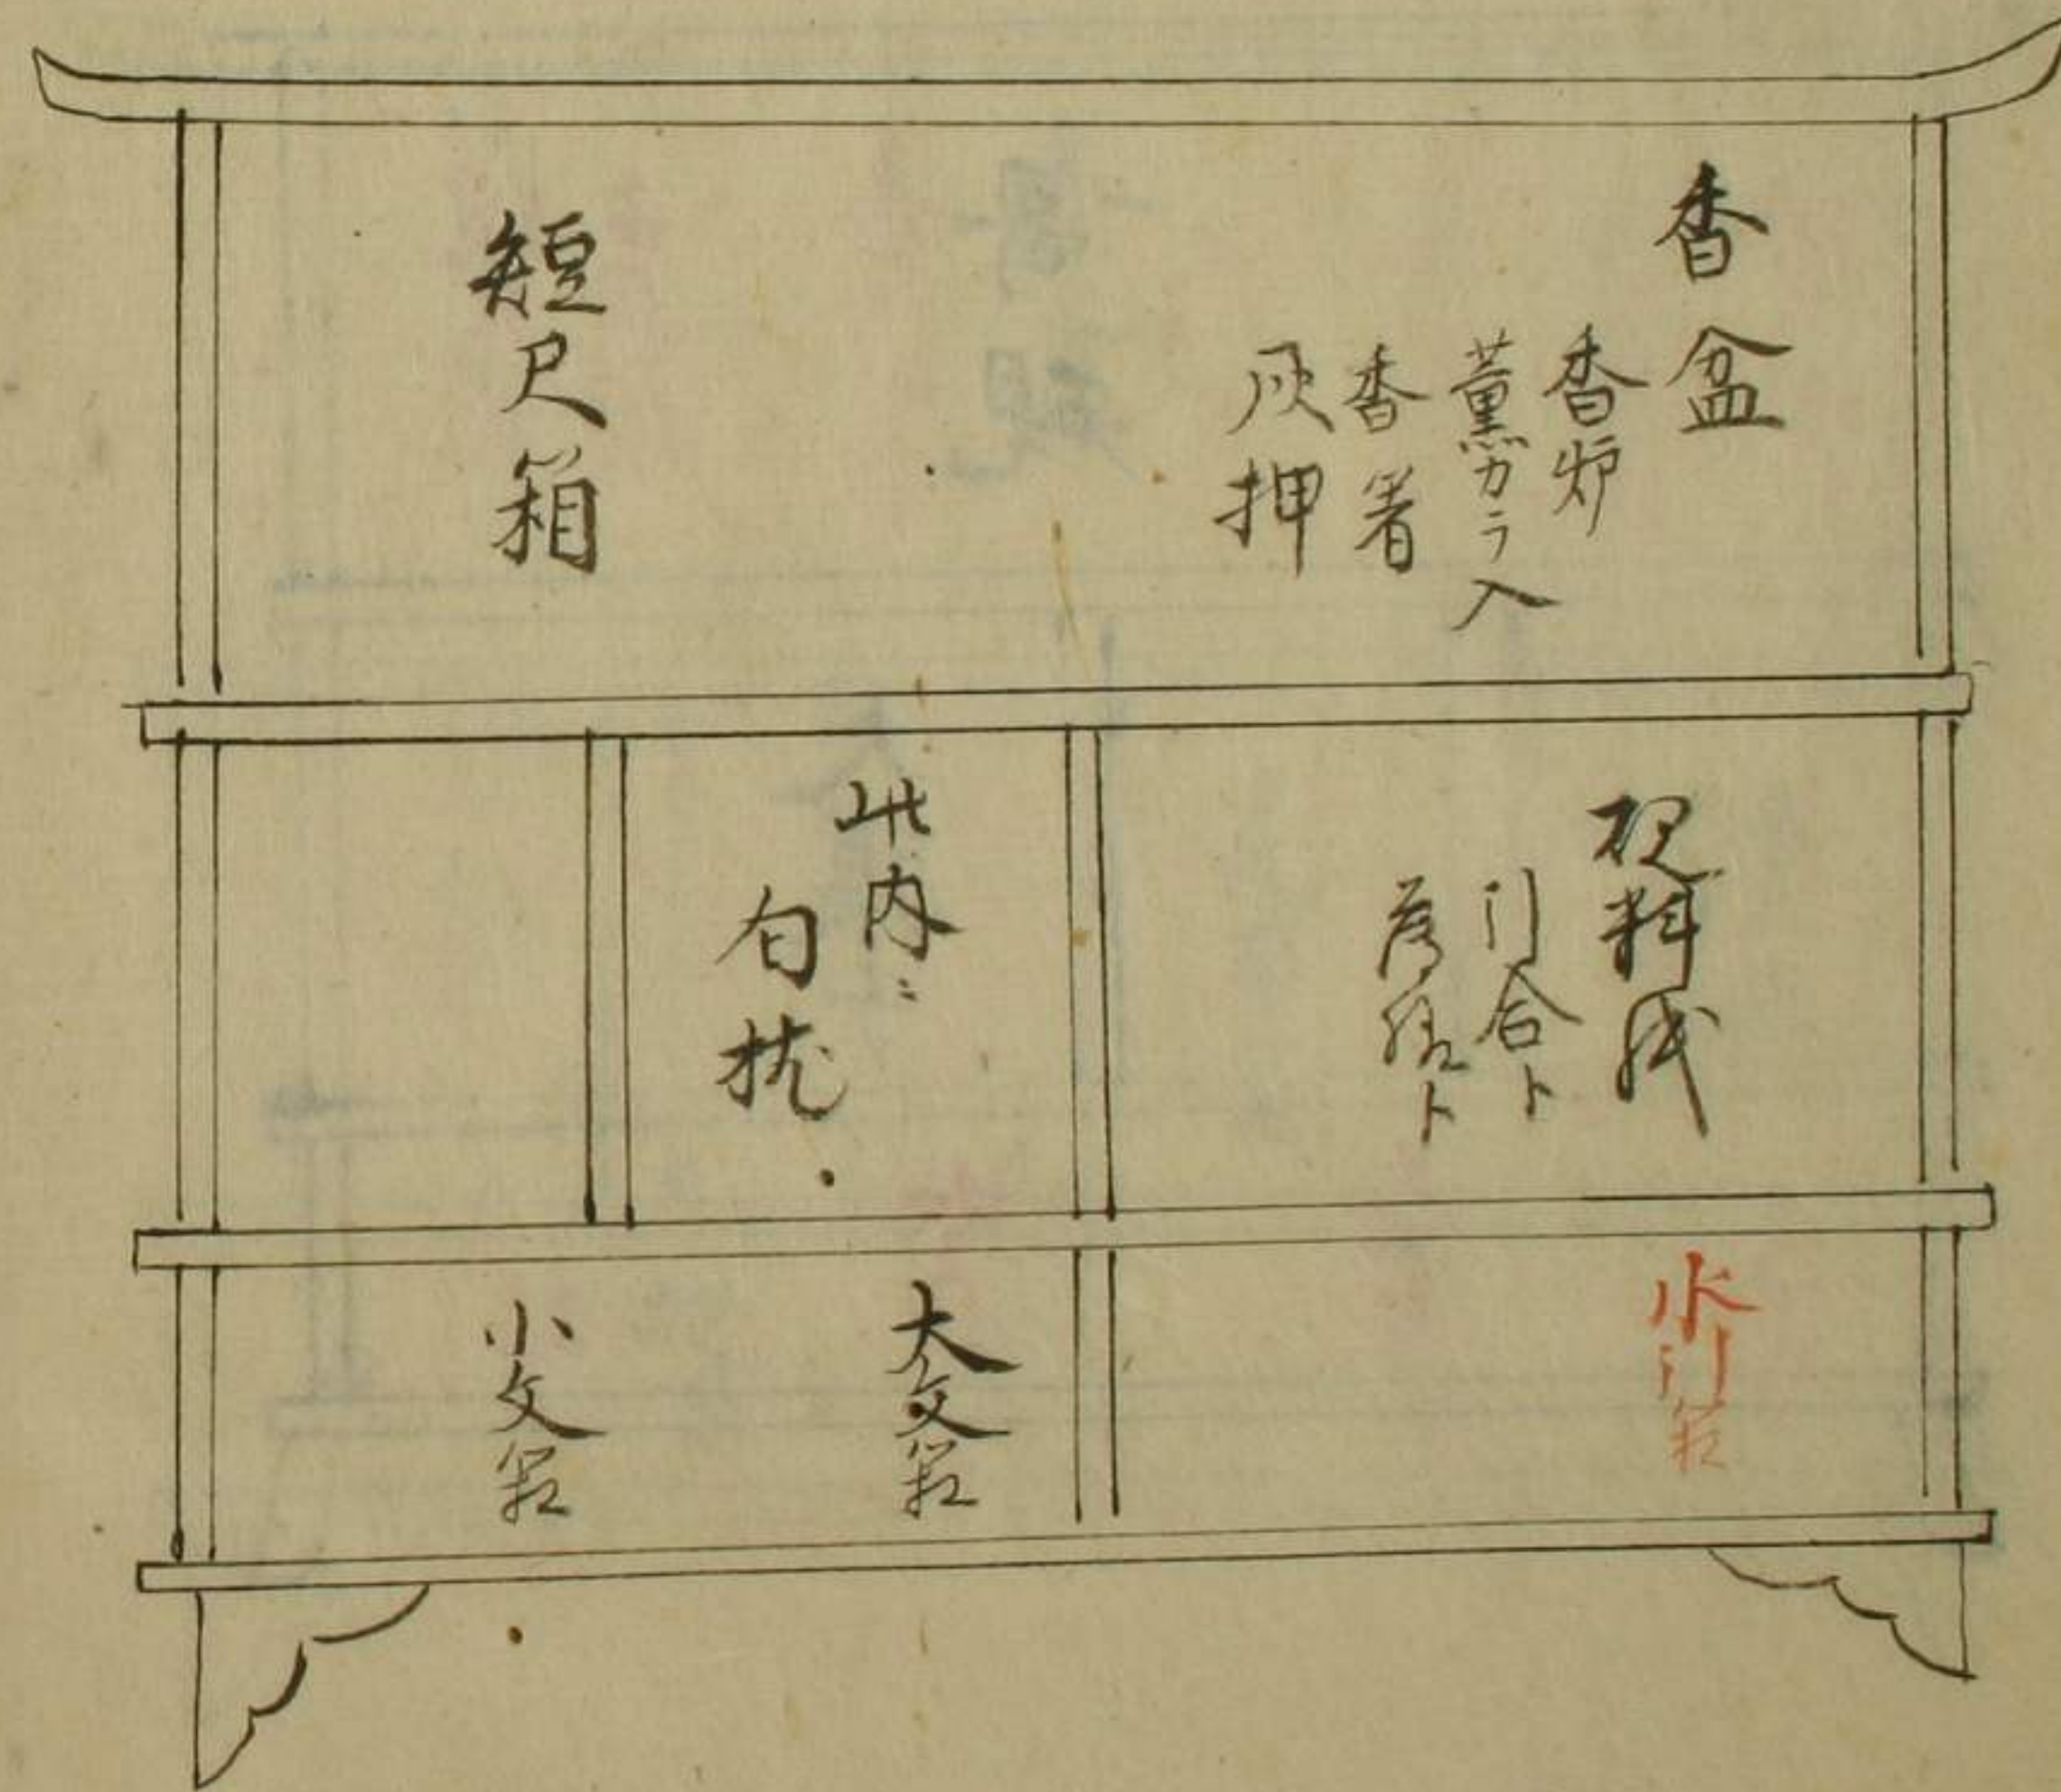 香盆
香炉
薫カラ入
香箸
灰押
短尺箱
硯料紙
引合ト
薄様ト
此内ニ
匂
大文箱
小文箱
水引箱